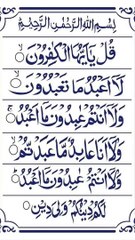 بِسْمِ اللهِ الرَّحْمٰنِ الرَّحِيْمِ
قُلْ يٰٓاَيُّهَا الْكٰفِرُوْنَ
لَاۤ اَعْبُدُ مَا تَعْبُدُوْنَ
وَلَاۤ اَنْتُمْ عٰبِدُوْنَ مَاۤ اَعْبُدُ
وَلَاۤ اَنَا عَابِدٌ مَّا عَبَدْتُّمْ
وَلَاۤ اَنْتُمْ عٰبِدُوْنَ مَاۤ اَعْبُدُ
لَكُمْ دِيْنُكُمْ وَلِيَ دِيْنِ